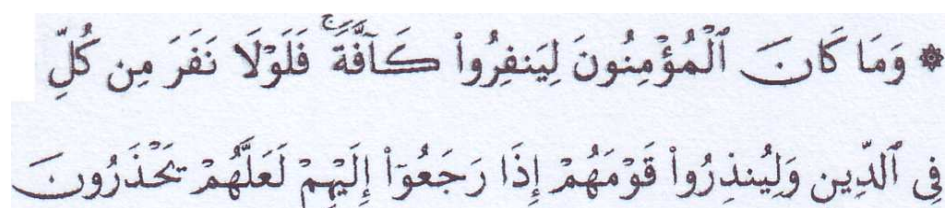 ۞ وَمَا كَانَ ٱلْمُؤْمِنُونَ لِيَنفِرُوا۟ كَآفَّةً ۚ فَلَوْلَا نَفَرَ مِن كُلِّ
فِى ٱلدِّينِ وَلِيُنذِرُوا۟ قَوْمَهُمْ إِذَا رَجَعُوٓا۟ إِلَيْهِمْ لَعَلَّهُمْ يَحْذَرُونَ